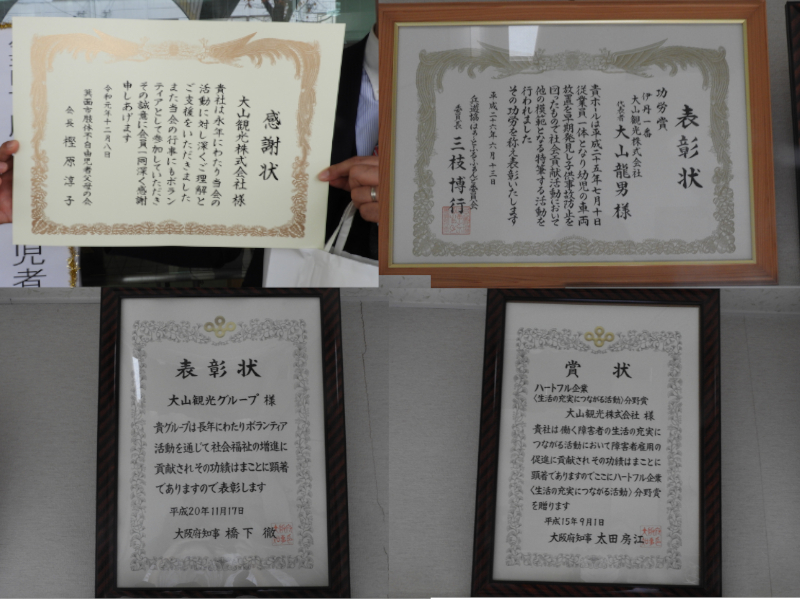 感謝状
大山観光株式会社 様
貴社は永年にわたり当会の
活動に対し深くご理解と
ご支援をいただきました
また当会の行事にもボラン
ティアとして参加していただき
その誠意に会員一同深く感謝
申しあげます
令和元年十二月八日
箕面市肢体不自由児者父母の会
会長 樫原淳子
児者
表彰状
功労賞
伊丹一番
大山観光株式会社
代表者 大山龍男 様
貴ホールは平成二十五年七月十日
従業員一体となり幼児の車両
放置を早期発見し子供事故防止を
図ったもので社会貢献活動において
他の模範となる特筆する活動を
行われました
その功労を称え表彰いたします
平成二十六年六月十三日
委員長 三枝博行
表彰状
大山観光グループ 様
貴グループは長年にわたりボランティア
活動を通じて社会福祉の増進に
貢献されその功績はまことに顕著
でありますので表彰します
平成20年11月17日
大阪府知事 橋下 徹
賞状
ハートフル企業
〈生活の充実につながる活動〉分野賞
大山観光株式会社 様
貴社は働く障害者の生活の充実に
つながる活動において障害者雇用の
促進に貢献されその功績はまことに
顕著でありますのでここにハートフル企業
〈生活の充実につながる活動〉分野賞
を贈ります
平成15年9月1日
大阪府知事 太田房江